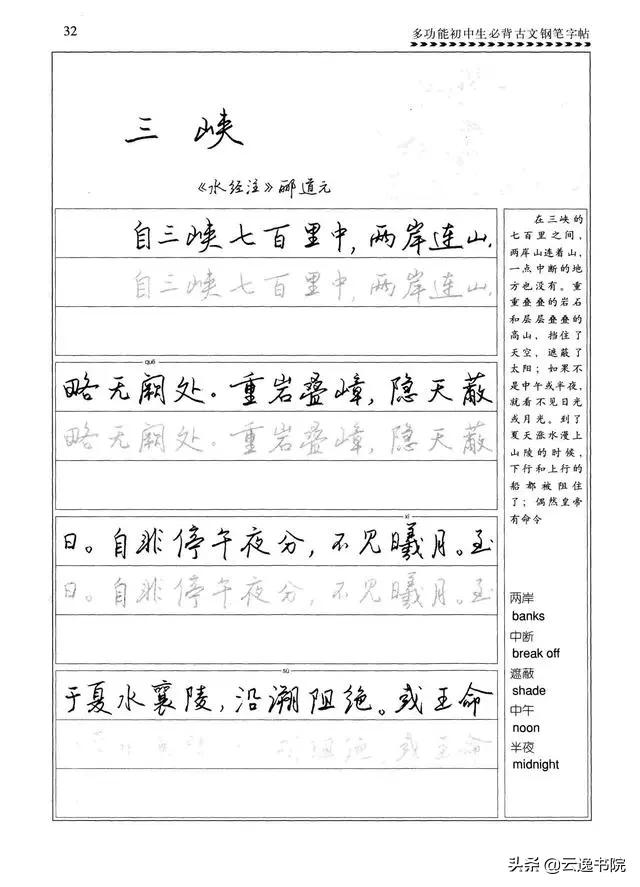 32
多功能初中生必背古文钢笔字帖
三 峡
《水经注》郦道元
自三峡七百里中，两岸连山，
自三峡七百里中，两岸连山，
quē
略无阙处。重岩叠嶂，隐天蔽
略无阙处。重岩叠嶂，隐天蔽
xī
日。自非停午夜分，不见曦月。至
日。自非停午夜分，不见曦月。至
sù
于夏水襄陵，沿溯阻绝。或王命
阻绝。或王命
在三峡的
七百里之间，
两岸山连着山，
一点中断的地
方也没有。重
重叠叠的岩石
和层层叠叠的
高山，挡住了
天空，遮蔽了
太阳；如果不
是中午或半夜，
就看不见日光
或月光。到了
夏天涨水漫上
山陵的时候，
下行和上行的
船都被阻住
了；偶然皇帝
有命令
两岸
banks
中断
break off
遮蔽
shade
中午
noon
半夜
midnight
头条 @云逸书院